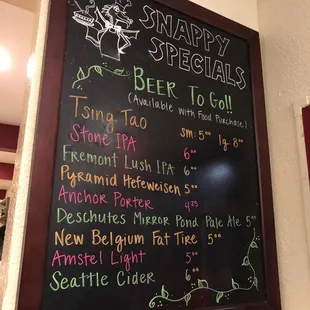 SNAPPY
SPECIALS
BEER TO GO!!
(Available with Food Purchase)
Tsing Tao sm: 5⁰⁰ lg: 8⁰⁰
Stone IPA 6⁰⁰
Fremont Lush IPA 6⁰⁰
Pyramid Hefeweisen 5⁰⁰
Anchor Porter 4²⁵
Deschutes Mirror Pond Pale Ale 5⁰⁰
New Belgium Fat Tire 5⁰⁰
Amstel Light 5⁰⁰
Seattle Cider 6⁰⁰